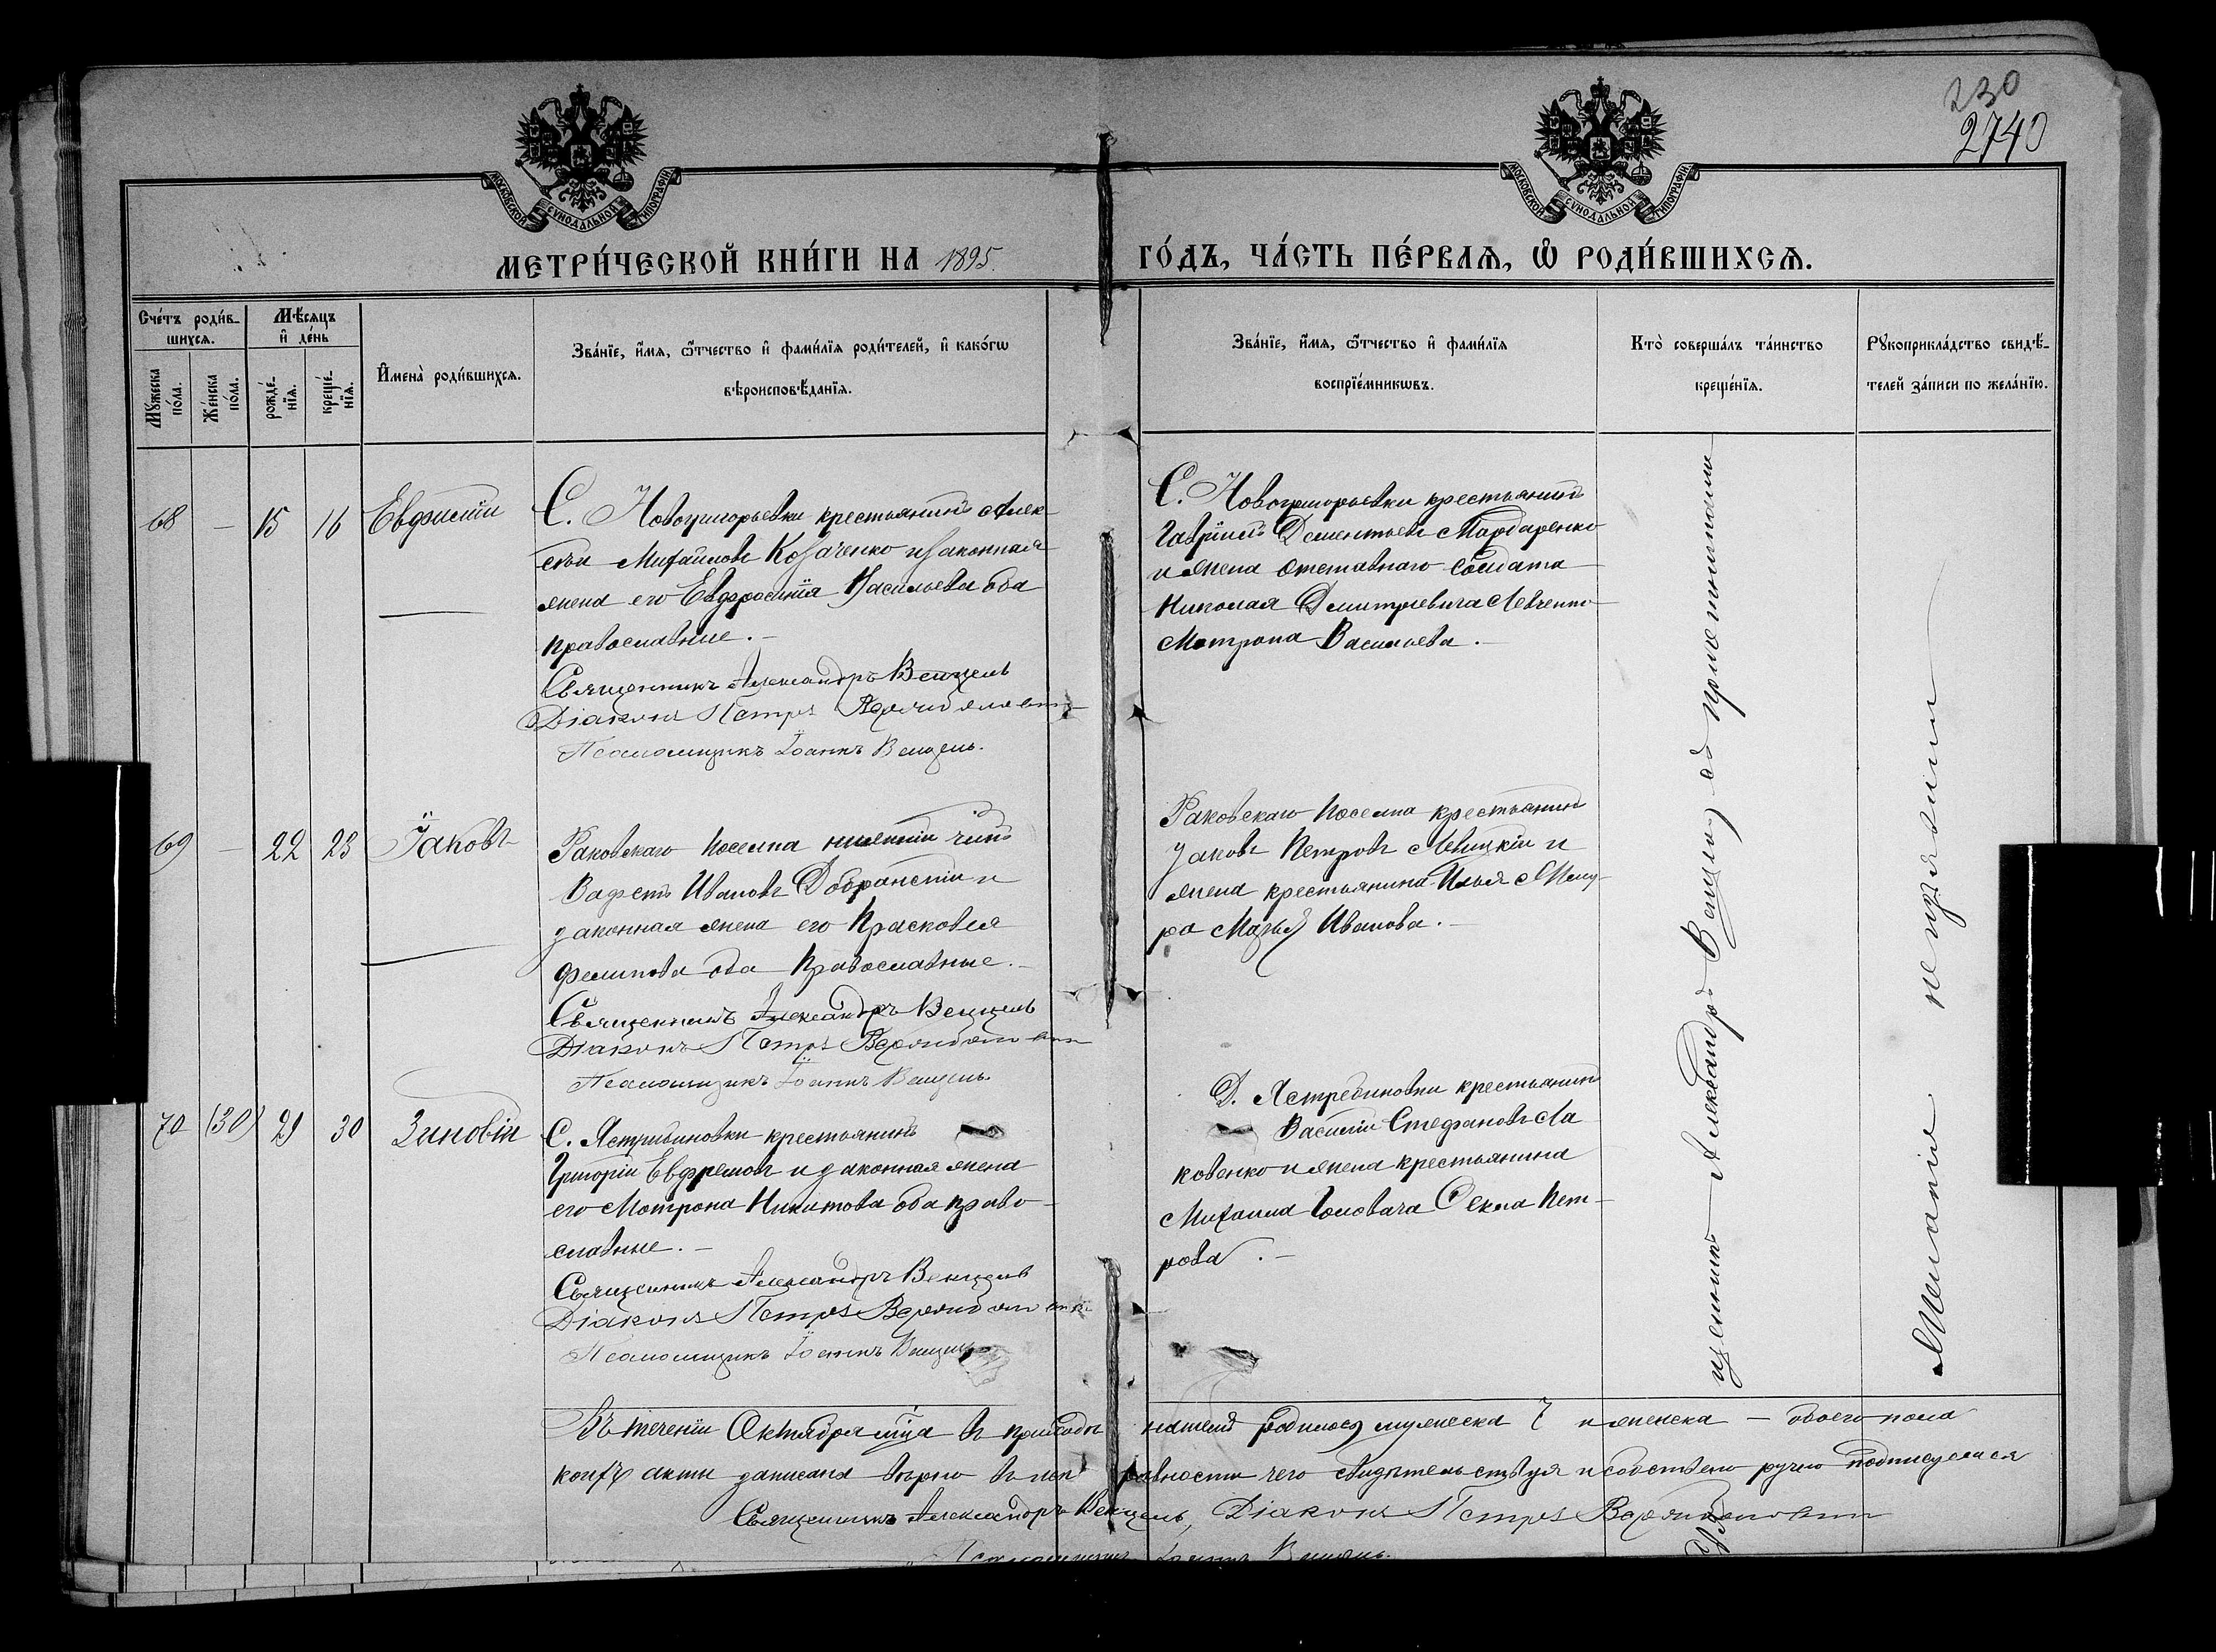 230
2740
МОСКОВСКОЙ СУНОДАЛЬНОЙ ТИПОГРАФІИ
МОСКОВСКОЙ СУНОДАЛЬНОЙ ТИПОГРАФІИ
МЕТРИ́ЧЕСКОЙ КНИ́ГИ НА 1895. ГО́ДЪ, ЧА́СТЬ ПЕ́РВАѦ, Ѡ҆ РОДИ́ВШИХСѦ.
Сче́тъ роди́в-
шихсѧ.
Мѣ́сѧцъ
и҆ де́нь
Мꙋ́жеска
по́ла.
Же́нска
по́ла.
рожде́-
нїѧ.
креще́-
нїѧ.
И҆мена̀ роди́вшихсѧ.
Зва́нїе, и҆́мѧ, ѻ҆́тчество и҆ фами́лїѧ роди́телей, и҆ како́гѡ
вѣроисповѣ́данїѧ.
Зва́нїе, и҆́мѧ, ѻ҆́тчество и҆ фами́лїѧ
воспрїе́мникѡвъ.
Кто̀ соверша́лъ та́инство
креще́нїѧ.
Рꙋкоприкла́дство свидѣ́-
телей за́писи по жела́нїю.
68 — 15 16 Евфимій
С. Новогригорьевки крестьянинъ Алек-
сѣй Михаиловъ Козаченко и законная
жена его Евфросинія Васильева оба
православные. —
Священникъ Александръ Венцель
Діаконъ Петръ
Псаломщикъ Іоаннъ Венцель.
С. Новогригорьевки крестьянинъ
Гавріилъ Дементьевъ Мардаренко
и жена отставнаго солдата
Николая Дмитріевича Левченко
Мотрона Васильева. —
69 — 22 23 Іаковъ
Раковскаго поселка нижній чинъ
Иванов Добранскій и
законная жена его Прасковея
Филипова оба православные. —
Священникъ Александръ Венцель
Діаконъ Петръ
Псаломщикъ Іоаннъ Венцель
Раковскаго поселка крестьянинъ
Іаковъ Петровъ Левицкій и
жена крестьянина Илья
Марья Иванова. —
70 (30) 29 30 Зиновій
С. Ястрибиновки крестьянинъ
Григорій Евфремовъ и законная жена
его Мотрона Никитова оба право-
славные. —
Священникъ Александръ Венцель
Діаконъ Петръ
Псаломщикъ Іоаннъ Венцель
Д. Ястребиновки крестьянинъ
Василій Стефановъ Ла
ковенко и жена крестьянина
Михаила Головача Фекла Пет-
рова. —
Священникъ Александръ Венцель съ причтомъ
Желанія не изъявили
Въ теченіи Октября мца въ приходѣ нашемъ родилось мужеска 7 и женска — обоего пола
коихъ акты записаны вѣрно въ исправности чего свидѣтельствуя и собственоручно подписуемся
Священникъ Александръ Венцель, Діаконъ Петръ
Псаломщикъ Іоаннъ Венцель.